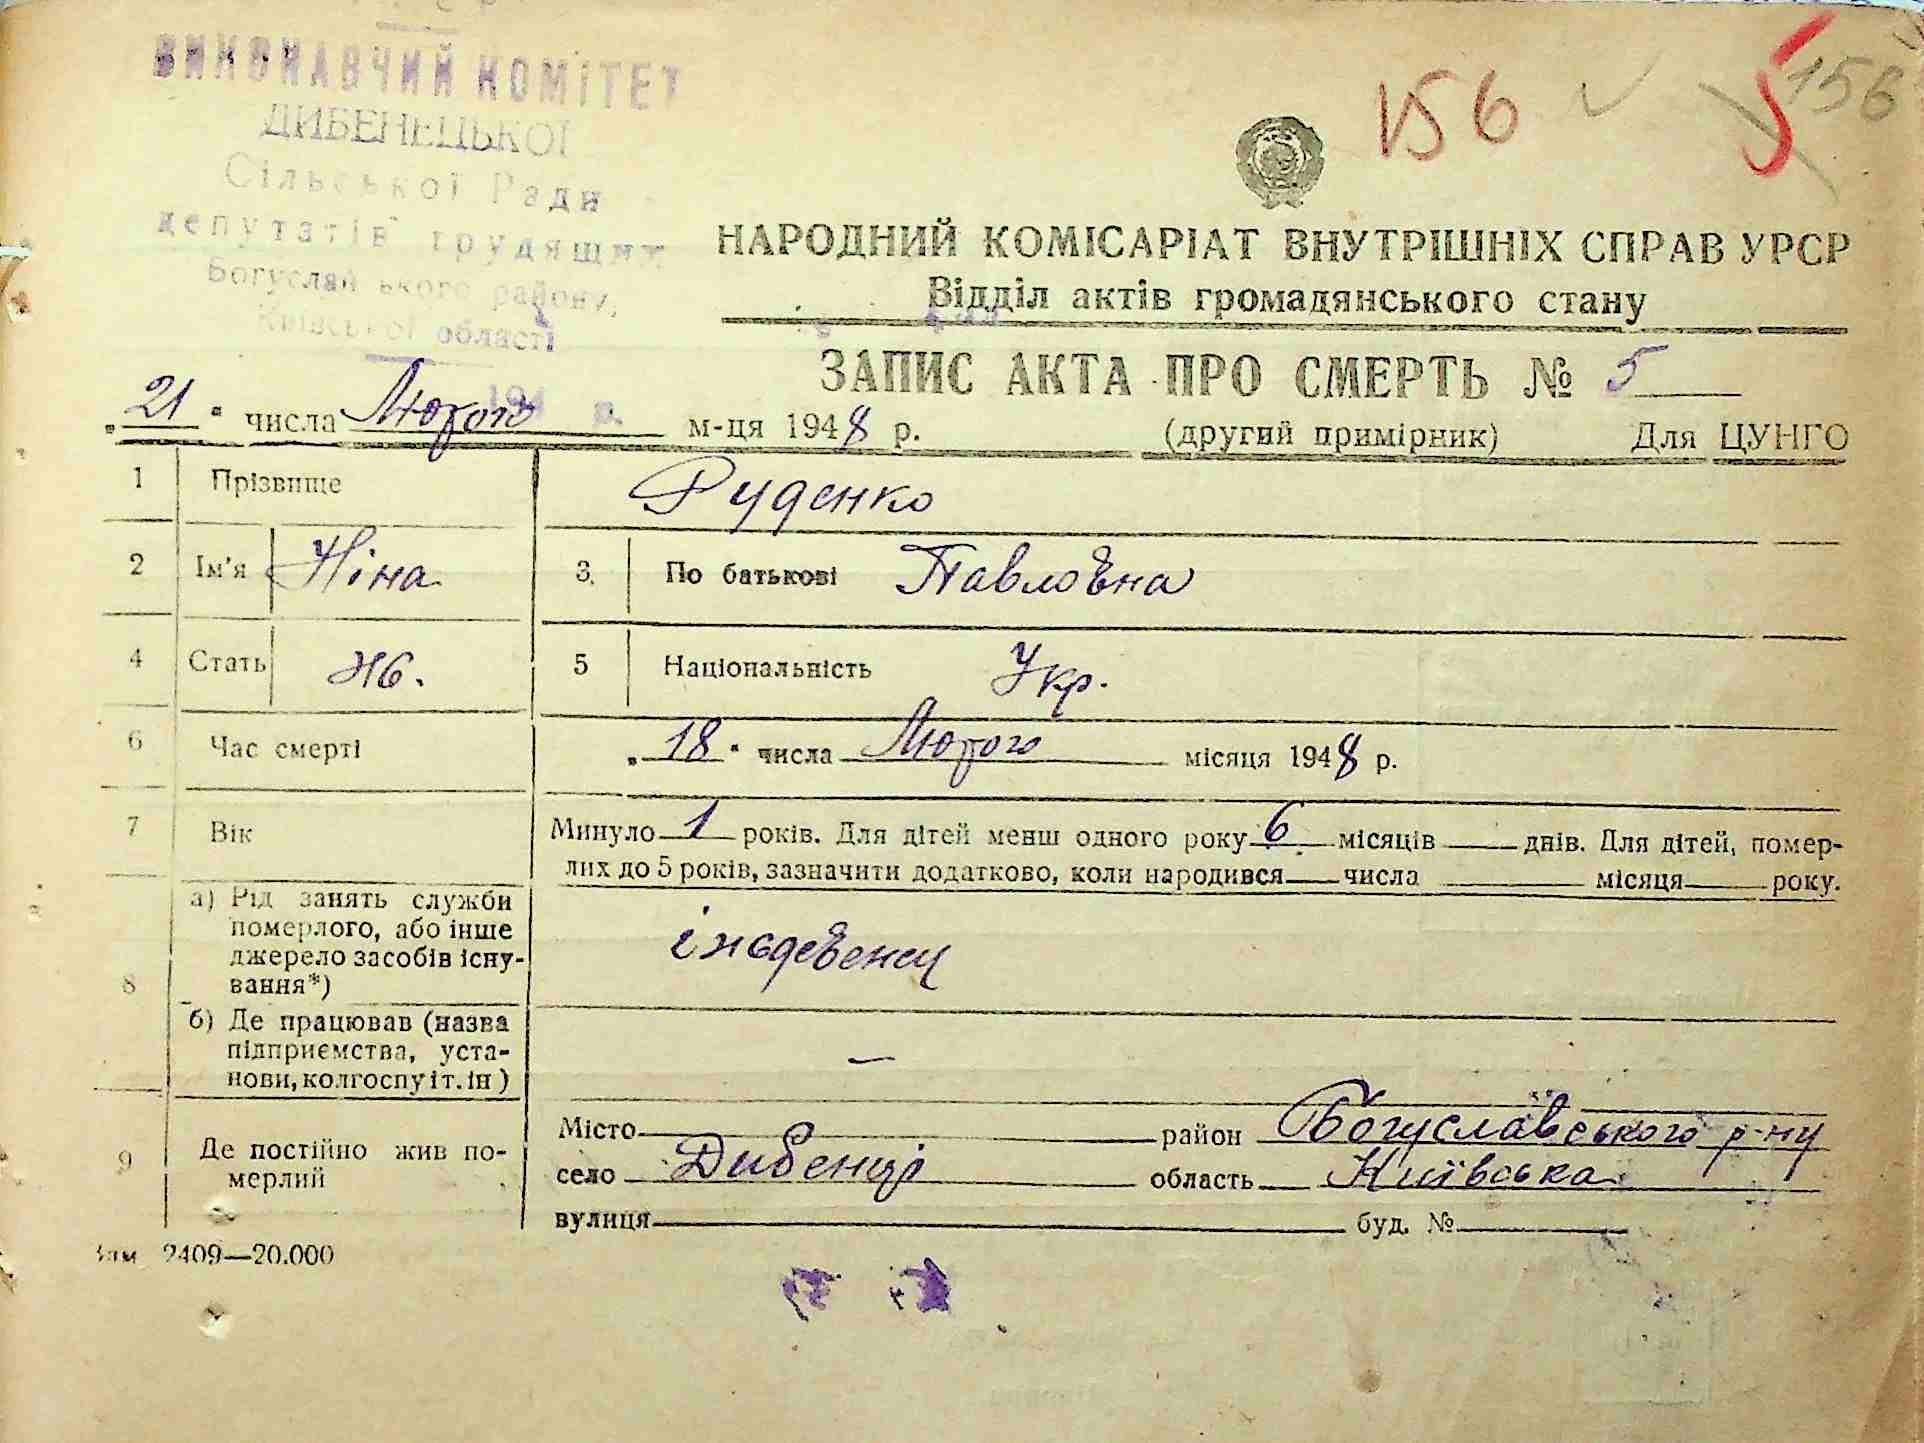 ВИКОНАВЧИЙ КОМІТЕТ
ДИБЕНЕЦЬКОЇ
Сільської Ради
депутатів трудящих
Богуслав ького району,
Київської області
194 р.
156
5
156
НАРОДНИЙ КОМІСАРІАТ ВНУТРІШНІХ СПРАВ УРСР
Відділ актів громадянського стану
ЗАПИС АКТА ПРО СМЕРТЬ № 5
„21" числа Лютого м-ця 1948 р. (другий примірник) Для ЦУНГО
1 Прізвище Руденко
2 Ім'я Ніна 3. По батькові Павловна
4 Стать Ж. 5 Національність Укр.
6 Час смерті „18" числа Лютого місяця 1948 р.
7 Вік Минуло 1 років. Для дітей менш одного року 6 місяців днів. Для дітей, помер-
лих до 5 років, зазначити додатково, коли народився числа місяця року.
8 а) Рід занять служби
померлого, або інше
джерело засобів існу-
вання*)
б) Де працював (назва
підприємства, уста-
нови, колгоспу і т. ін)
—
9 Де постійно жив по-
мерлий
Місто район Богуславського р-ну
село Дибенці область Київська
вулиця буд. №
Зам 2409—20.000